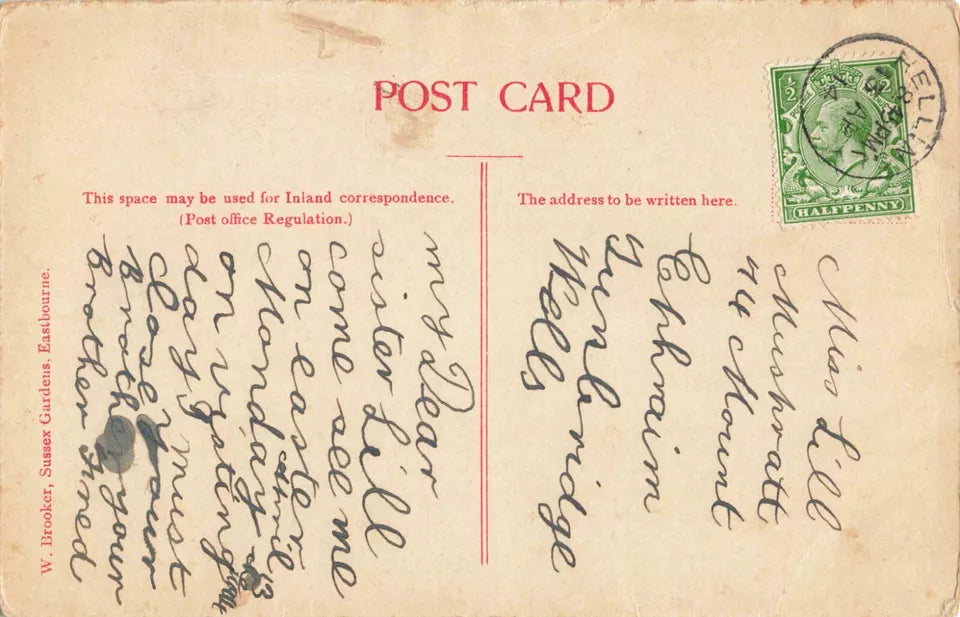 POST CARD
This space may be used for Inland correspondence.
(Post office Regulation.)
The address to be written here.
W. Brooker, Sussex Gardens, Eastbourne.
½
HALFPENNY
HELLIN
my Dear
sister Lill
come see me
on easter
Monday April 13
on vysting
days I must
close your
Brother your
Brother Fred
Miss Lill
Mushratt
44 Mount
Ephraim
Tunbridge
Wells